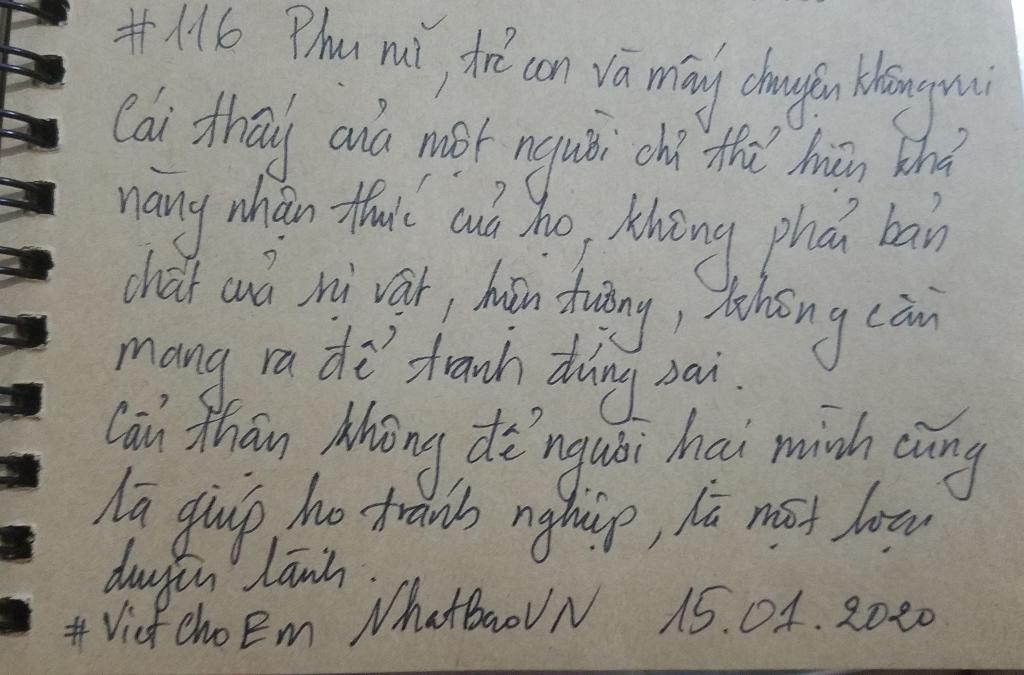 #116 Phụ nữ, trẻ con và mấy chuyện không vui
Cái thấy của một người chỉ thể hiện khả
năng nhận thức của họ, không phải bản
chất của sự vật, hiện tượng, không cần
mang ra để tranh đúng sai.
Cẩn thận không để người hại mình cũng
là giúp họ tránh nghiệp, là một loại
duyên lành.
#VietChoEm NhatBaoVN 15.01.2020